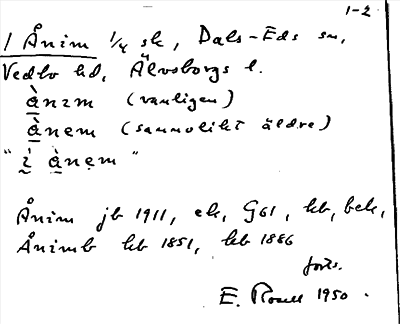 1-2
1 Ånim ¼ sk, Dals-Eds sn,
Vedbo hd, Älvsborgs l.
ànım (vanligen)
ànem (sannolikt äldre)
"i ànem"
Ånim jb 1911, ek, G61, hb, bek,
Ånimb hb 1851, hb 1886
forts.
E. 1950.